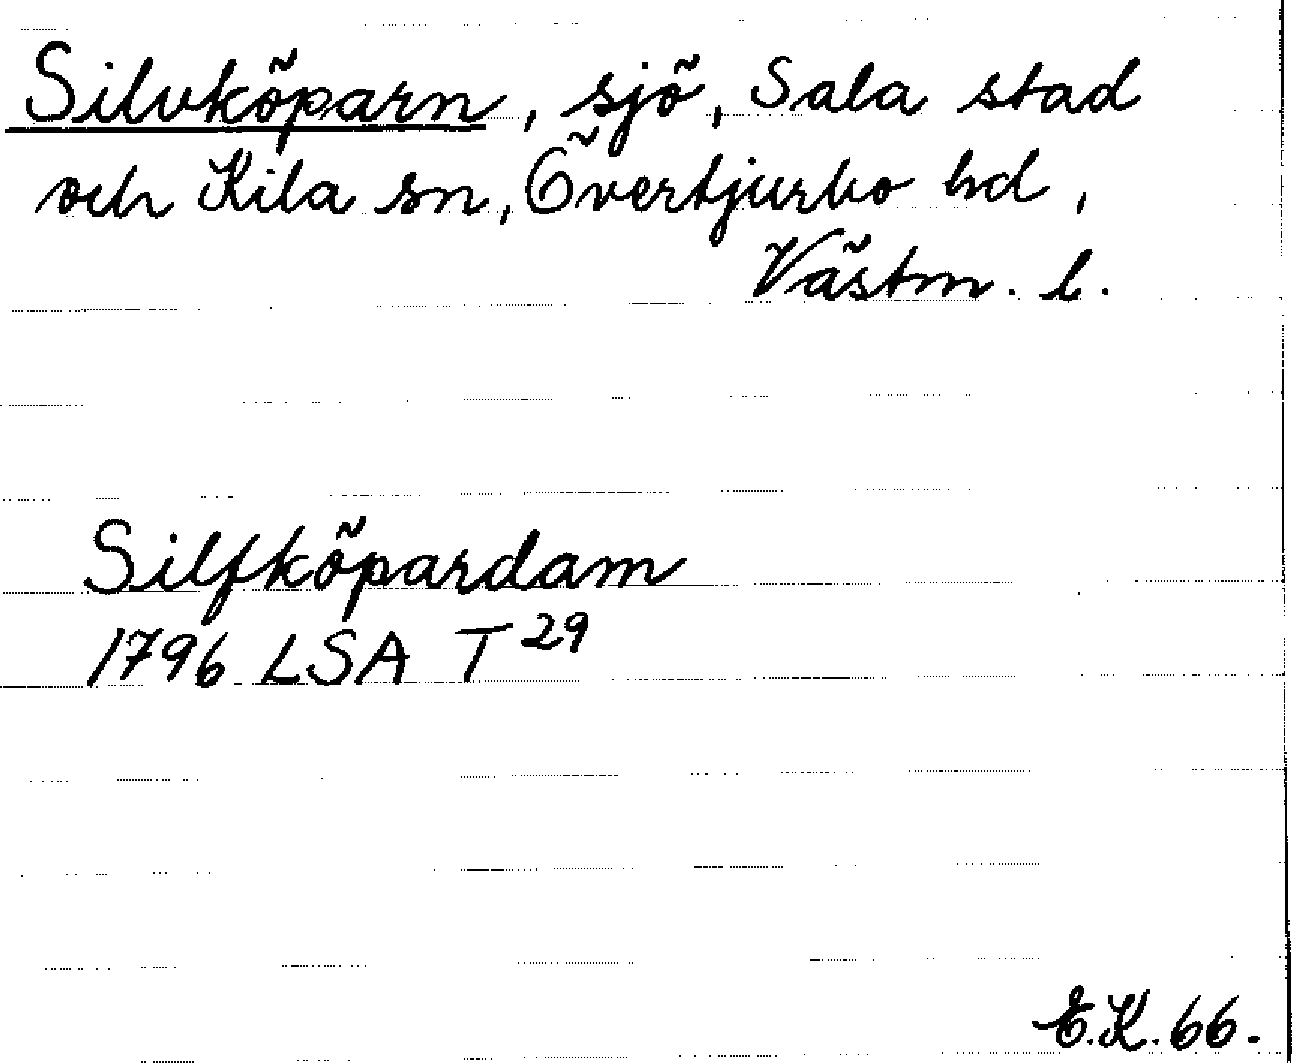 Silvköparn, sjö, Sala stad
och Kila sn, Övertjurbo hd,
Västm. l.
Silfköpardam
1796 LSA T 29
E.K. 66.